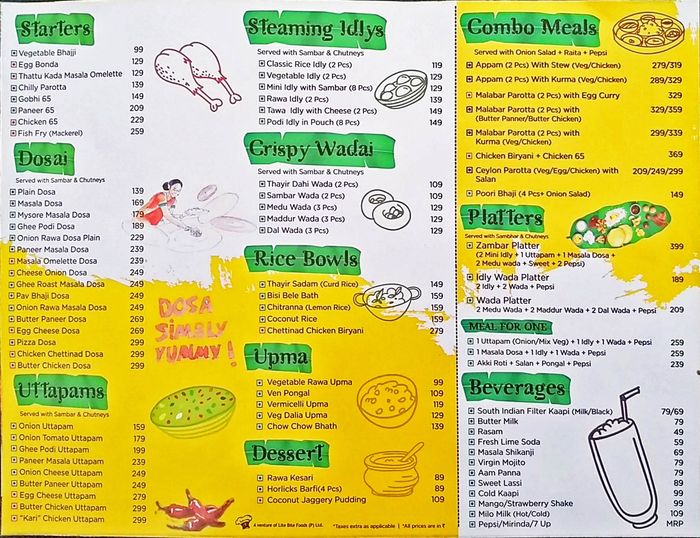 Starters
Vegetable Bhajji 99
Egg Bonda 129
Thattu Kada Masala Omelette 129
Chilly Parotta 139
Gobhi 65 149
Paneer 65 209
Chicken 65 229
Fish Fry (Mackerel) 259
Dosai
Served with Sambar & Chutneys
Plain Dosa 139
Masala Dosa 169
Mysore Masala Dosa 179
Ghee Podi Dosa 189
Onion Rawa Dosa Plain 229
Paneer Masala Dosa 239
Masala Omelette Dosa 239
Cheese Onion Dosa 249
Ghee Roast Masala Dosa 249
Pav Bhaji Dosa 249
Onion Rawa Masala Dosa 249
Butter Paneer Dosa 269
Egg Cheese Dosa 269
Pizza Dosa 299
Chicken Chettinad Dosa 299
Butter Chicken Dosa 299
DOSA
SIMPLY
YUMMY!
Uttapams
Served with Sambar & Chutneys
Onion Uttapam 159
Onion Tomato Uttapam 179
Ghee Podi Uttapam 199
Paneer Masala Uttapam 239
Onion Cheese Uttapam 249
Butter Paneer Uttapam 249
Egg Cheese Uttapam 279
Butter Chicken Uttapam 299
"Kari" Chicken Uttapam 299
Steaming Idlys
Served with Sambar & Chutneys
Classic Rice Idly (2 Pcs) 119
Vegetable Idly (2 Pcs) 129
Mini Idly with Sambar (8 Pcs) 129
Rawa Idly (2 Pcs) 139
Tawa Idly with Cheese (2 Pcs) 149
Podi Idly in Pouch (8 Pcs) 149
Crispy Wadai
Served with Sambar & Chutneys
Thayir Dahi Wada (2 Pcs) 109
Sambar Wada (2 Pcs) 109
Medu Wada (3 Pcs) 129
Maddur Wada (3 Pcs) 129
Dal Wada (3 Pcs) 129
Rice Bowls
Thayir Sadam (Curd Rice) 149
Bisi Bele Bath 159
Chitranna (Lemon Rice) 159
Coconut Rice 159
Chettinad Chicken Biryani 279
Upma
Vegetable Rawa Upma 99
Ven Pongal 109
Vermicelli Upma 119
Veg Dalia Upma 129
Chow Chow Bhath 139
Dessert
Rawa Kesari 89
Horlicks Barfi(4 Pcs) 89
Coconut Jaggery Pudding 109
A venture of Lite Bite Foods (P) Ltd. *Taxes extra as applicable | *All prices are in ₹
Combo Meals
Served with Onion Salad + Raita + Pepsi
Appam (2 Pcs) With Stew (Veg/Chicken) 279/319
Appam (2 Pcs) With Kurma (Veg/Chicken) 289/329
Malabar Parotta (2 Pcs) with Egg Curry 329
Malabar Parotta (2 Pcs) with 329/359
(Butter Panner/Butter Chicken)
Malabar Parotta (2 Pcs) with 299/339
Kurma (Veg/Chicken)
Chicken Biryani + Chicken 65 369
Ceylon Parotta (Veg/Egg/Chicken) with 209/249/299
Salan
Poori Bhaji (4 Pcs+ Onion Salad) 149
Platters
Served with Sambhar & Chutneys
Zambar Platter 399
(2 Mini Idly + 1 Uttapam + 1 Masala Dosa +
2 Medu wada + Sweet + 2 Pepsi)
Idly Wada Platter 189
2 Idly + 2 Wada + Pepsi
Wada Platter
2 Medu Wada + 2 Maddur Wada + 2 Dal Wada + Pepsi 209
MEAL FOR ONE
1 Uttapam (Onion/Mix Veg) + 1 Idly + 1 Wada + Pepsi 259
1 Masala Dosa + 1 Idly + 1 Wada + Pepsi 259
Akki Roti + Salan + Pongal + Pepsi 239
Beverages
South Indian Filter Kaapi (Milk/Black) 79/69
Butter Milk 79
Rasam 49
Fresh Lime Soda 59
Masala Shikanji 69
Virgin Mojito 79
Aam Panna 79
Sweet Lassi 89
Cold Kaapi 99
Mango/Strawberry Shake 99
Milo Milk (Hot/Cold) 109
Pepsi/Mirinda/7 Up MRP